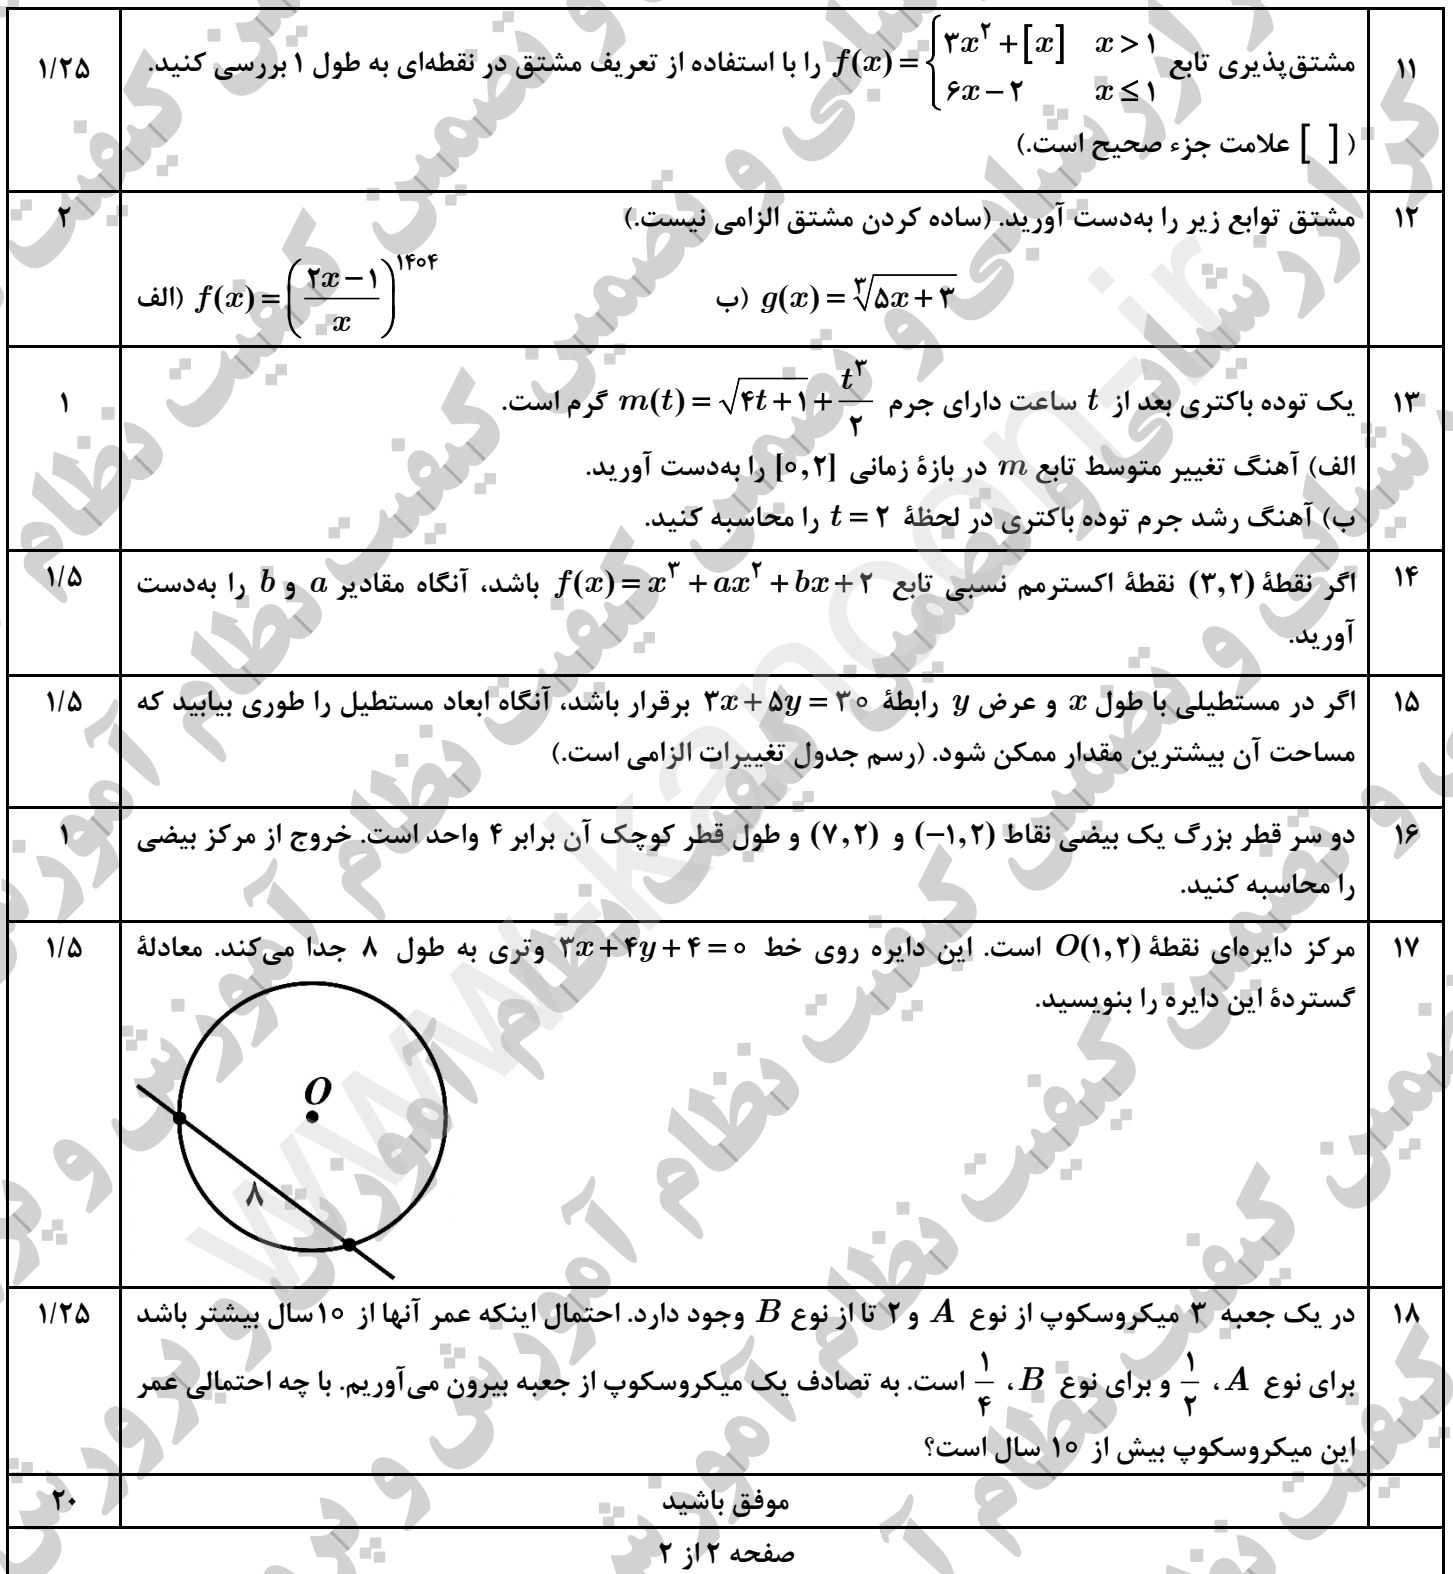 ۱۱ مشتق‌پذیری تابع f(x) = { ۳x² + [x]   x > ۱ ; ۶x − ۲   x ≤ ۱ را با استفاده از تعریف مشتق در نقطه‌ای به طول ۱ بررسی کنید. ۱/۲۵
( [ ] علامت جزء صحیح است.)
۱۲ مشتق توابع زیر را به‌دست آورید. (ساده کردن مشتق الزامی نیست.) ۲
الف) f(x) = ((۲x − ۱)/x)^۱۴۰۴   ب) g(x) = ∛(۵x + ۳)
۱۳ یک توده باکتری بعد از t ساعت دارای جرم m(t) = √(۴t + ۱) + t³/۲ گرم است. ۱
الف) آهنگ تغییر متوسط تابع m در بازهٔ زمانی [۰,۲] را به‌دست آورید.
ب) آهنگ رشد جرم توده باکتری در لحظهٔ t = ۲ را محاسبه کنید.
۱۴ اگر نقطهٔ (۳,۲) نقطهٔ اکسترمم نسبی تابع f(x) = x³ + ax² + bx + ۲ باشد، آنگاه مقادیر a و b را به‌دست ۱/۵
آورید.
۱۵ اگر در مستطیلی با طول x و عرض y رابطهٔ ۳x + ۵y = ۳۰ برقرار باشد، آنگاه ابعاد مستطیل را طوری بیابید که ۱/۵
مساحت آن بیشترین مقدار ممکن شود. (رسم جدول تغییرات الزامی است.)
۱۶ دو سر قطر بزرگ یک بیضی نقاط (−۱,۲) و (۷,۲) و طول قطر کوچک آن برابر ۴ واحد است. خروج از مرکز بیضی ۱
را محاسبه کنید.
۱۷ مرکز دایره‌ای نقطهٔ O(۱,۲) است. این دایره روی خط ۳x + ۴y + ۴ = ۰ وتری به طول ۸ جدا می‌کند. معادلهٔ ۱/۵
گستردهٔ این دایره را بنویسید.
O
۸
۱۸ در یک جعبه ۳ میکروسکوپ از نوع A و ۲ تا از نوع B وجود دارد. احتمال اینکه عمر آنها از ۱۰ سال بیشتر باشد ۱/۲۵
برای نوع A، ۱/۲ و برای نوع B، ۱/۴ است. به تصادف یک میکروسکوپ از جعبه بیرون می‌آوریم. با چه احتمالی عمر
این میکروسکوپ بیش از ۱۰ سال است؟
موفق باشید ۲۰
صفحه ۲ از ۲
www.kanoon.ir